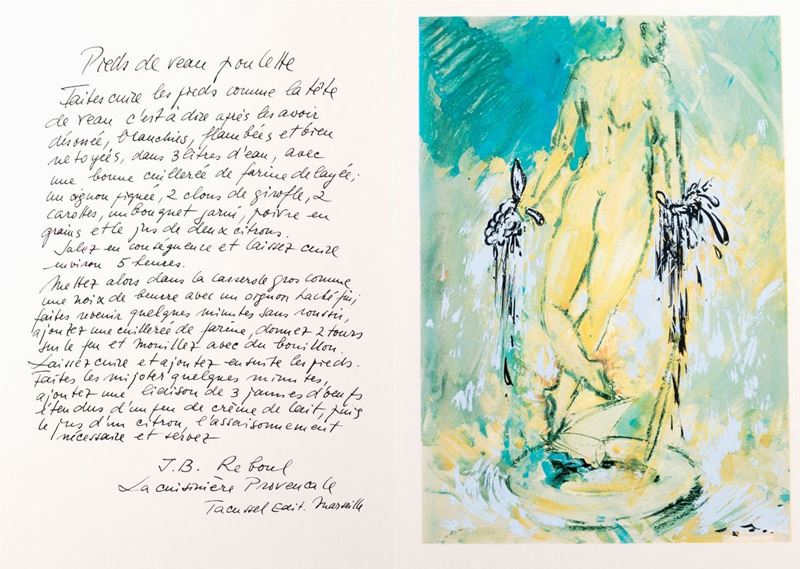 Pieds de veau poulette
Faites cuire les pieds comme la tête
de veau c'est à dire après les avoir
désossés, blanchis, flambés et bien
nettoyés, dans 3 litres d'eau, avec
une bonne cuillerée de farine délayée;
un oignon piqué, 2 clous de girofle, 2
carottes, un bouquet garni, poivre en
grains et le jus de deux citrons.
Salez en conséquence et laissez cuire
environ 5 heures.
Mettez alors dans la casserole gros comme
une noix de beurre avec un oignon haché fin,
faites revenir quelques minutes sans roussir,
ajoutez une cuillerée de farine, donnez 2 tours
sur le feu et mouillez avec du bouillon.
Laissez cuire et ajoutez ensuite les pieds.
Faites les mijoter quelques minutes,
ajoutez une liaison de 3 jaunes d'oeufs
étendus d'un peu de crème de lait, puis
le jus d'un citron, l'assaisonnement
nécessaire et servez.
J.B. Reboul
La cuisinière Provençale
Tacussel Edit. Marseille